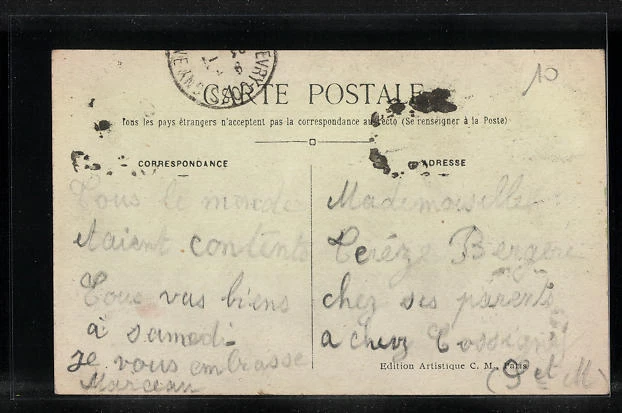 10
EVRY
CARTE POSTALE
Tous les pays étrangers n'acceptent pas la correspondance au recto (Se renseigner à la Poste)
CORRESPONDANCE
ADRESSE
Tous le monde
etaient contents
Tous vas biens
à samedi
Je vous embrasse
Marceau
Mademoiselle
Terèze Bergere
chez ses parents
a chevy Cossigny
(S et M)
Edition Artistique C. M., Paris